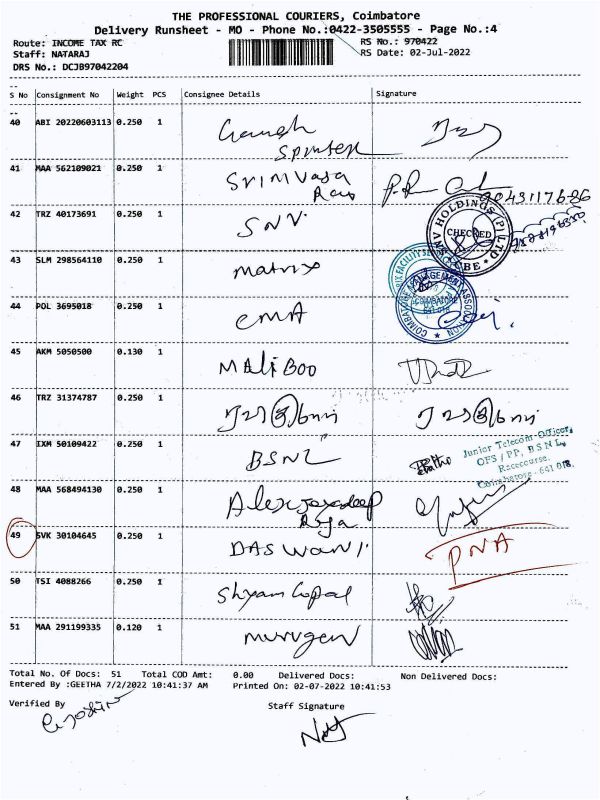 THE PROFESSIONAL COURIERS, Coimbatore
Delivery Runsheet - MO - Phone No.:0422-3505555 - Page No.:4
Route: INCOME TAX RC RS No.: 970422
Staff: NATARAJ RS Date: 02-Jul-2022
DRS No.: DCJB97042204
S No Consignment No Weight PCS Consignee Details Signature
40 ABI 20220603113 0.250 1 Ganesh
Spintex
41 MAA 562109021 0.250 1 Srinivasa
Rao
42 TRZ 40173691 0.250 1 SNV
SNV HOLDINGS (P) LTD
CHECKED
CBE
43 SLM 298564110 0.250 1 matrix
COIMBATORE MANAGEMENT ASSOCIATION
COIMBATORE
641 018
44 POL 3695018 0.250 1 CMA
45 AKM 5050500 0.130 1 MALiBOO
46 TRZ 31374787 0.250 1
47 IXM 50109422 0.250 1 BSNL
Junior Telecom Officer,
OFS / PP, B S N L,
Racecourse,
Coimbatore - 641 018.
48 MAA 568494130 0.250 1 Alex Jayadeep
Raja
49 SVK 30104645 0.250 1 DASWANI PNA
50 TSI 4088266 0.250 1 Shyam Gopal
51 MAA 291199335 0.120 1 murugan
Total No. Of Docs: 51 Total COD Amt: 0.00 Delivered Docs: Non Delivered Docs:
Entered By :GEETHA 7/2/2022 10:41:37 AM Printed On: 02-07-2022 10:41:53
Verified By Staff Signature